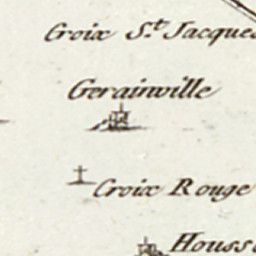 Croix S.t Jacques
Gerainville
Croix Rouge
Houss